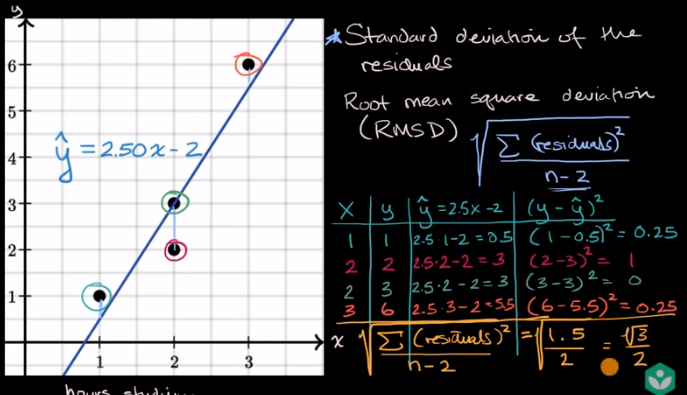 y
6
5
4
3
2
1
1 2 3
ŷ = 2.50x - 2
* Standard deviation of the
residuals
Root mean square deviation
(RMSD) √(Σ (residuals)² / n-2)
x | y | ŷ = 2.5x - 2 | (y - ŷ)²
1 | 1 | 2.5·1-2 = 0.5 | (1-0.5)² = 0.25
2 | 2 | 2.5·2-2 = 3 | (2-3)² = 1
2 | 3 | 2.5·2-2 = 3 | (3-3)² = 0
3 | 6 | 2.5·3-2 = 5.5 | (6-5.5)² = 0.25
x √(Σ (residuals)² / n-2) = √(1.5 / 2) = √3 / 2
hours